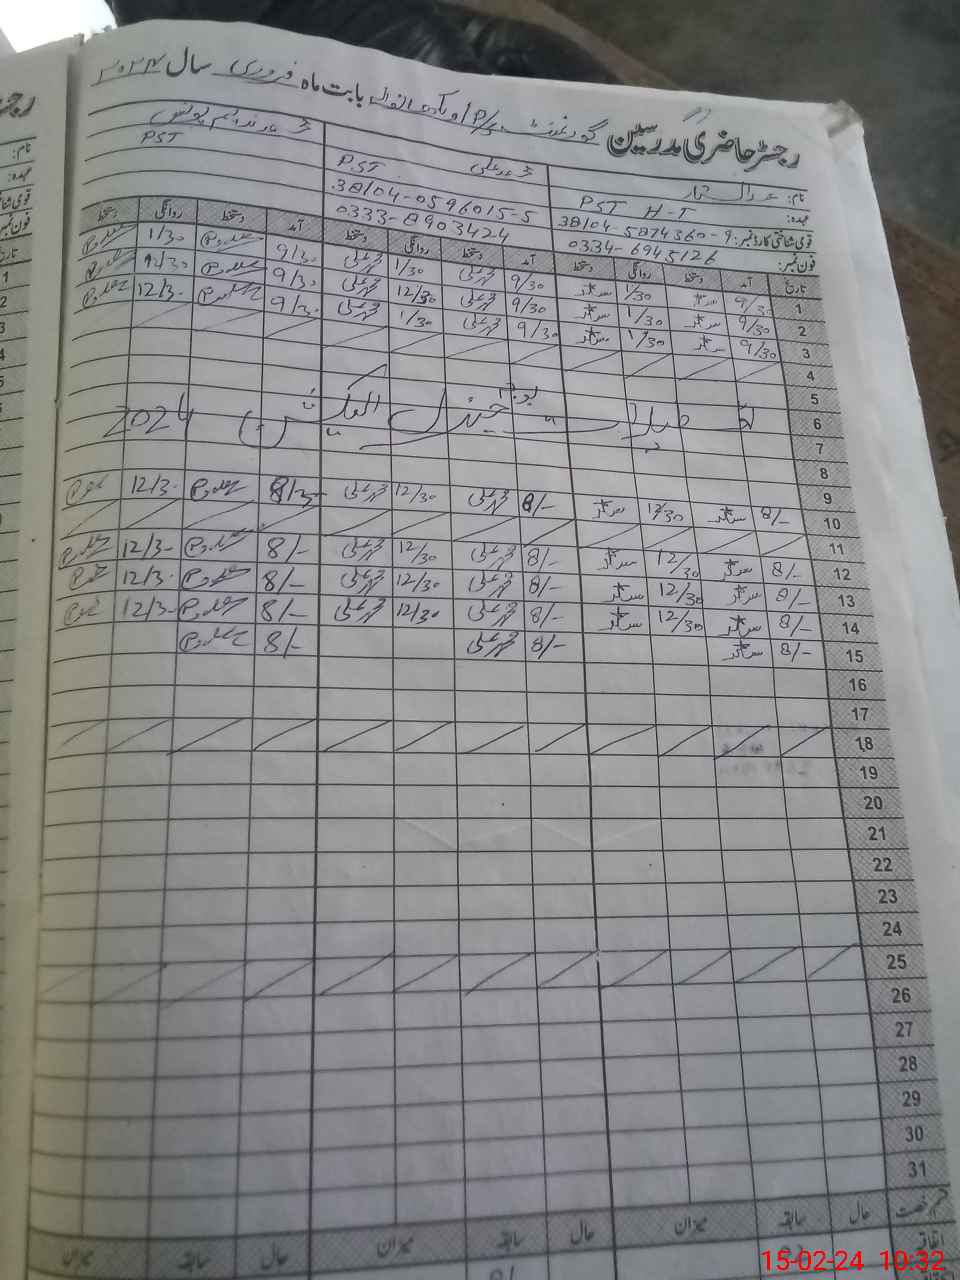 رجسٹر حاضری مدرسین گورنمنٹ P/S بابت ماہ فروری سال ۲۰۲۴
نام: عبدالستار
محمد علی
محمد ندیم یونس
عہدہ: PST H-T
PST
PST
قومی شناختی کارڈ نمبر: 38104-5874360-9
38104-0596015-5
فون نمبر: 0334-6945126
0333-8903424
تاریخ آمد دستخط روانگی دستخط آمد دستخط روانگی دستخط آمد دستخط روانگی دستخط
1 9/30 ستار 1/30 ستار 9/30 محمد علی 1/30 محمد علی 9/30 1/30
2 9/30 ستار 1/30 ستار 9/30 محمد علی 12/30 محمد علی 9/30 12/30
3 9/30 ستار 1/30 ستار 9/30 محمد علی 1/30 محمد علی 9/30 12/30
4
5
6 تعطیلات بوجہ جنرل الیکشن 2024
7
8
9 8/- ستار 12/30 ستار 8/- محمد علی 12/30 محمد علی 8/3 12/30
10
11
12 8/- ستار 12/30 ستار 8/- محمد علی 12/30 محمد علی 8/- 12/30
13 8/- ستار 12/30 ستار 8/- محمد علی 12/30 محمد علی 8/- 12/30
14 8/- ستار 12/30 ستار 8/- محمد علی 12/30 محمد علی 8/- 12/30
15 8/- ستار 8/- محمد علی 8/-
16
17
18
19
20
21
22
23
24
25
26
27
28
29
30
31
قسم رخصت حال سابقہ میزان حال سابقہ میزان حال سابقہ میزان
اتفاقیہ
15-02-24 10:32